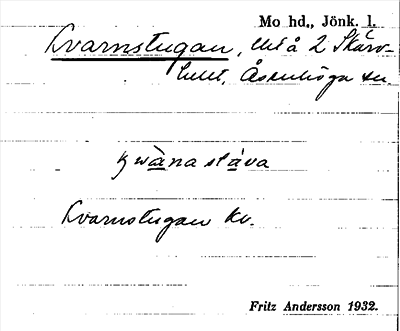 Mo hd., Jönk. l.
Kvarnstugan, utå 2 Skärv-
hult, Åsenhöga sn
Kvarnstugan kv.
Fritz Andersson 1932.